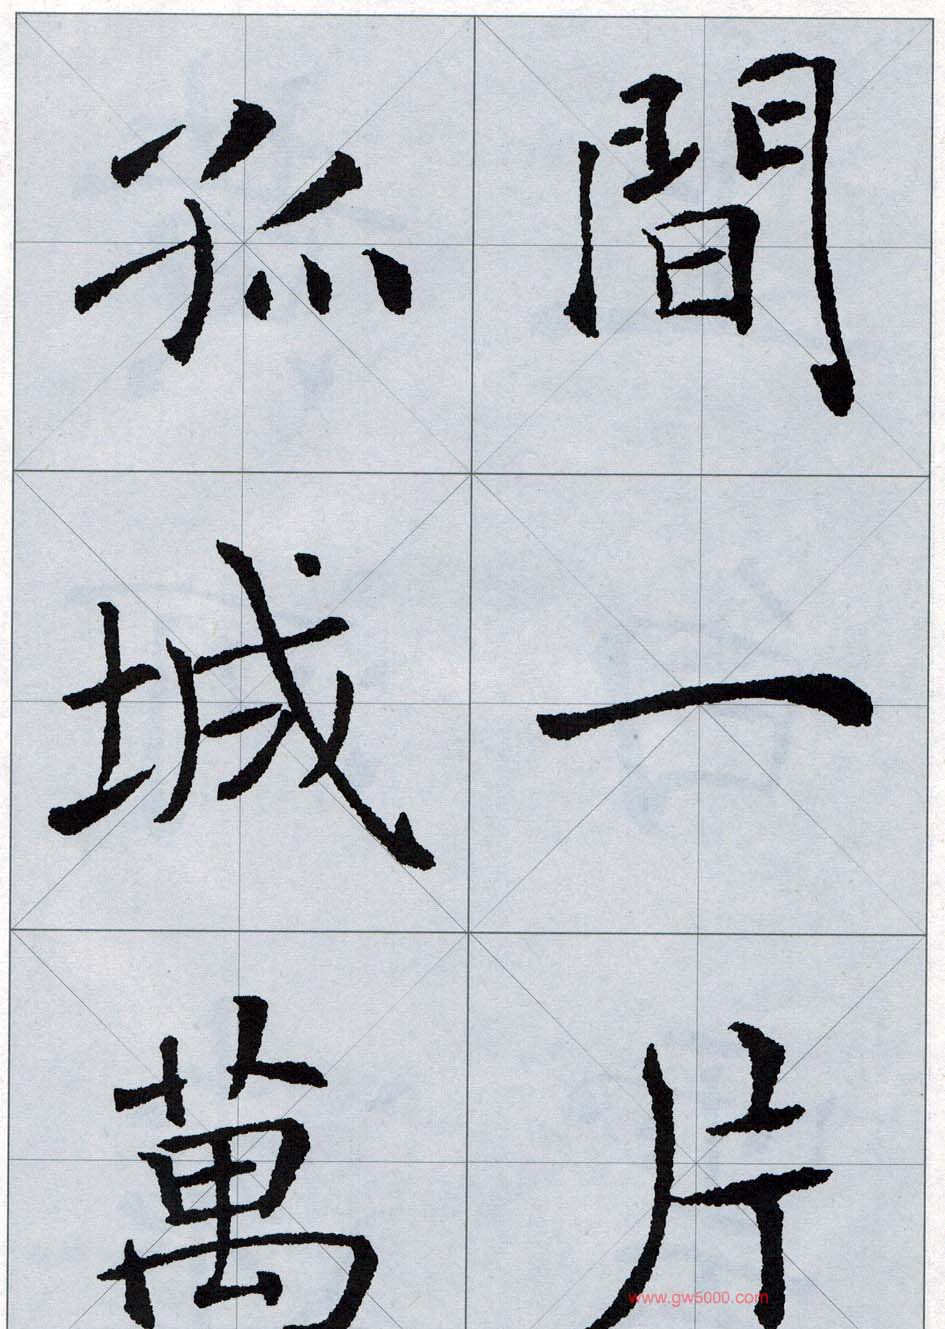 間一片
孤城萬
www.gw5000.com